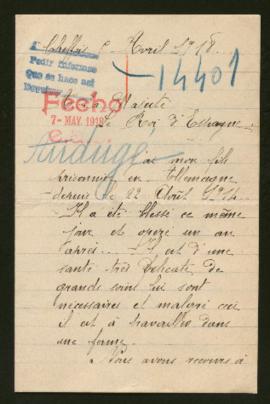 Pedir informes
Que se hace así
14401
Fecho
7 - MAY. 1918
Avril 1918
Sa Majesté
Le Roi d'Espagne
J'ai mon fils
prisonnier en Allemagne
depuis le 22 Août 1914
Il a été blessé ce même
jour et opéré un an
après. Il est d'une
santé très délicate de
grands soins lui sont
nécessaires et malgré ceci
il est à travailler dans
une ferme.
Nous avons recours à